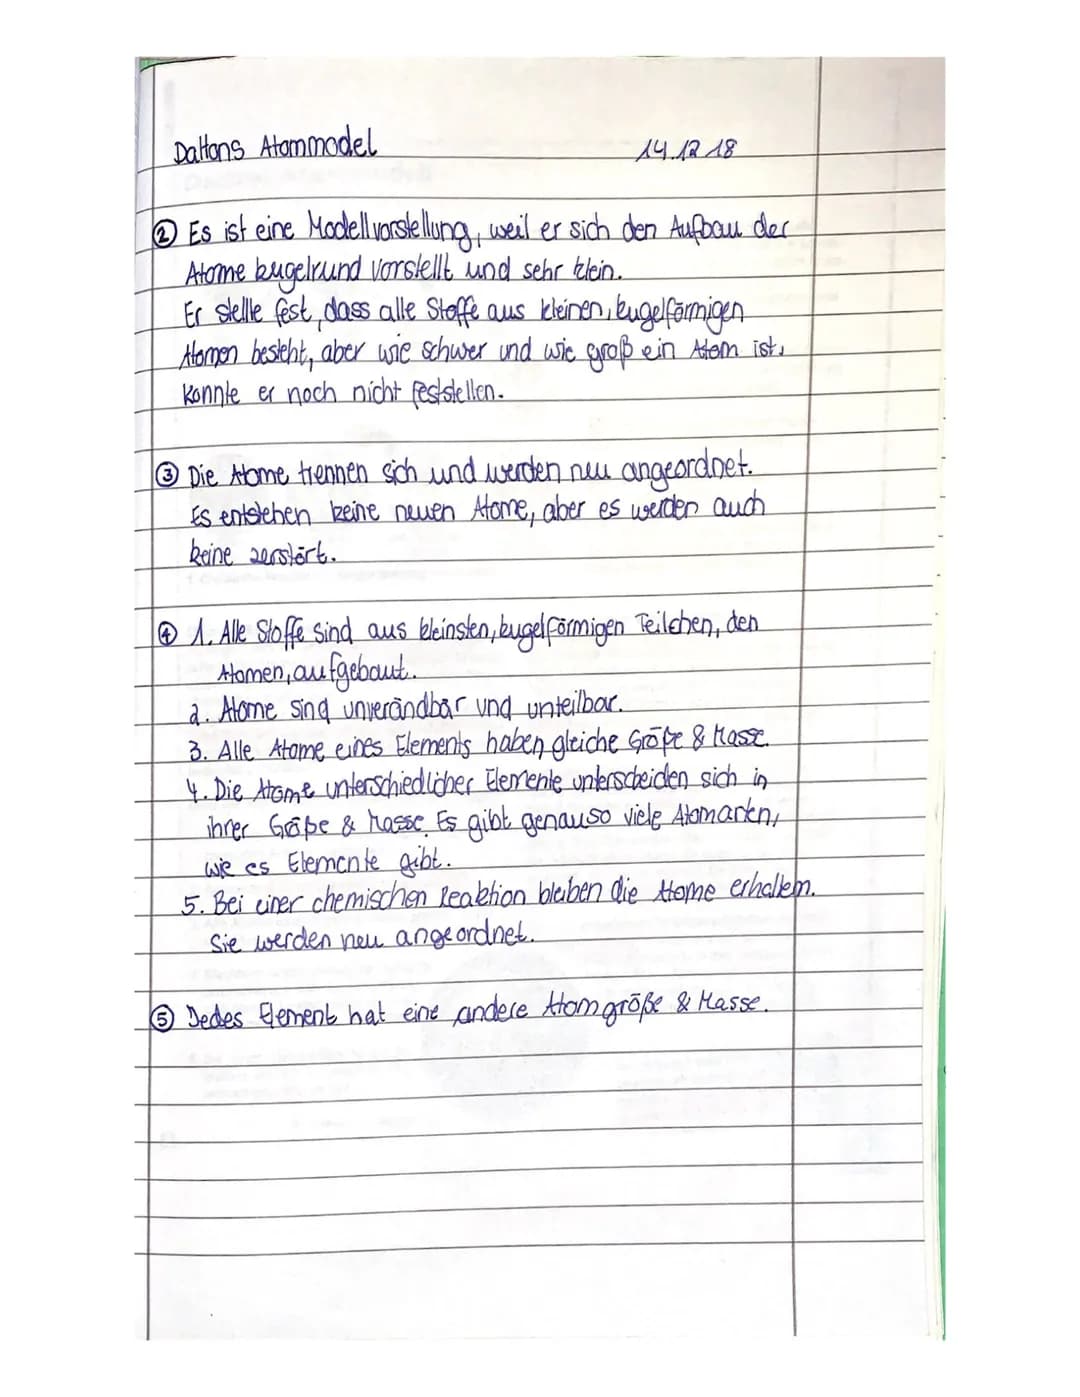 Daltons Atommodel 14.12.18
② Es ist eine Modellvorstellung, weil er sich den Aufbau der
Atome kugelrund vorstellt und sehr klein.
Er stellte fest, dass alle Stoffe aus kleinen, kugelförmigen
Atomen besteht, aber wie schwer und wie groß ein Atom ist,
konnte er noch nicht feststellen.
③ Die Atome trennen sich und werden neu angeordnet.
Es entstehen keine neuen Atome, aber es werden auch
keine zerstört.
④ 1. Alle Stoffe sind aus kleinsten, kugelförmigen Teilchen, den
Atomen, aufgebaut.
2. Atome sind unverändbar und unteilbar.
3. Alle Atome eines Elements haben gleiche Größe & Masse.
4. Die Atome unterschiedlicher Elemente unterscheiden sich in
ihrer Größe & Masse. Es gibt genauso viele Atomarten,
wie es Elemente gibt.
5. Bei einer chemischen Reaktion bleiben die Atome erhalten.
Sie werden neu angeordnet.
⑤ Jedes Element hat eine andere Atomgröße & Masse.